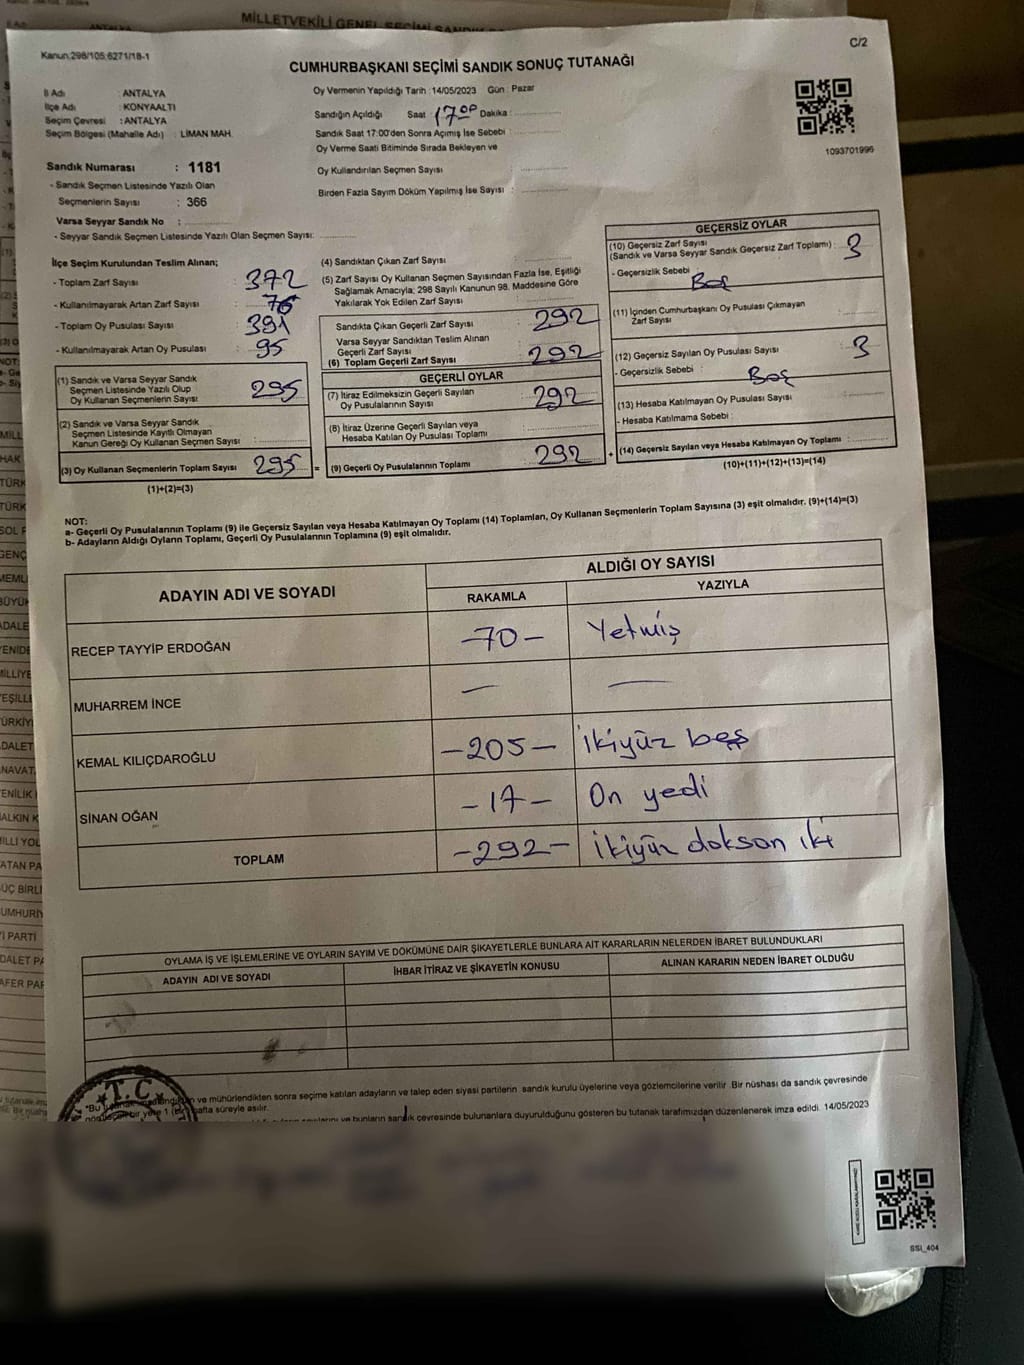 MİLLETVEKİLİ GENEL SEÇİMİ
Kanun:298/105;6271/18-1
C/2
CUMHURBAŞKANI SEÇİMİ SANDIK SONUÇ TUTANAĞI
İl Adı : ANTALYA
İlçe Adı : KONYAALTI
Seçim Çevresi : ANTALYA
Seçim Bölgesi (Mahalle Adı) : LİMAN MAH.
Oy Vermenin Yapıldığı Tarih :14/05/2023 Gün : Pazar
Sandığın Açıldığı Saat : 17.00 Dakika :
Sandık Saat 17:00'den Sonra Açımış İse Sebebi :
Oy Verme Saati Bitiminde Sırada Bekleyen ve
Oy Kullandırılan Seçmen Sayısı
Birden Fazla Sayım Döküm Yapılmış İse Sayısı :
1093701996
Sandık Numarası : 1181
- Sandık Seçmen Listesinde Yazılı Olan
Seçmenlerin Sayısı : 366
Varsa Seyyar Sandık No :
- Seyyar Sandık Seçmen Listesinde Yazılı Olan Seçmen Sayısı:
İlçe Seçim Kurulundan Teslim Alınan;
- Toplam Zarf Sayısı : 372
- Kullanılmayarak Artan Zarf Sayısı : 76
- Toplam Oy Pusulası Sayısı : 391
- Kullanılmayarak Artan Oy Pusulası : 95
(1) Sandık ve Varsa Seyyar Sandık
Seçmen Listesinde Yazılı Olup
Oy Kullanan Seçmenlerin Sayısı : 295
(2) Sandık ve Varsa Seyyar Sandık
Seçmen Listesinde Kayıtlı Olmayan
Kanun Gereği Oy Kullanan Seçmen Sayısı :
(3) Oy Kullanan Seçmenlerin Toplam Sayısı : 295
(1)+(2)=(3)
(4) Sandıktan Çıkan Zarf Sayısı :
(5) Zarf Sayısı Oy Kullanan Seçmen Sayısından Fazla İse, Eşitliği
Sağlamak Amacıyla; 298 Sayılı Kanunun 98. Maddesine Göre
Yakılarak Yok Edilen Zarf Sayısı
Sandıkta Çıkan Geçerli Zarf Sayısı : 292
Varsa Seyyar Sandıktan Teslim Alınan
Geçerli Zarf Sayısı :
(6) Toplam Geçerli Zarf Sayısı : 292
GEÇERLİ OYLAR
(7) İtiraz Edilmeksizin Geçerli Sayılan
Oy Pusulalarının Sayısı : 292
(8) İtiraz Üzerine Geçerli Sayılan veya
Hesaba Katılan Oy Pusulası Toplamı :
= (9) Geçerli Oy Pusulalarının Toplamı : 292
GEÇERSİZ OYLAR
(10) Geçersiz Zarf Sayısı
(Sandık ve Varsa Seyyar Sandık Geçersiz Zarf Toplamı) : 3
- Geçersizlik Sebebi : Boş
(11) İçinden Cumhurbaşkanı Oy Pusulası Çıkmayan
Zarf Sayısı :
(12) Geçersiz Sayılan Oy Pusulası Sayısı : 3
- Geçersizlik Sebebi : Boş
(13) Hesaba Katılmayan Oy Pusulası Sayısı :
- Hesaba Katılmama Sebebi :
+ (14) Geçersiz Sayılan veya Hesaba Katılmayan Oy Toplamı :
(10)+(11)+(12)+(13)=(14)
NOT:
a- Geçerli Oy Pusulalarının Toplamı (9) ile Geçersiz Sayılan veya Hesaba Katılmayan Oy Toplamı (14) Toplamları, Oy Kullanan Seçmenlerin Toplam Sayısına (3) eşit olmalıdır. (9)+(14)=(3)
b- Adayların Aldığı Oyların Toplamı, Geçerli Oy Pusulalarının Toplamına (9) eşit olmalıdır.
ADAYIN ADI VE SOYADI
ALDIĞI OY SAYISI
RAKAMLA YAZIYLA
RECEP TAYYİP ERDOĞAN -70- Yetmiş
MUHARREM İNCE — —
KEMAL KILIÇDAROĞLU -205- ikiyüz beş
SİNAN OĞAN -17- On yedi
TOPLAM -292- ikiyüz dokson iki
OYLAMA İŞ VE İŞLEMLERİNE VE OYLARIN SAYIM VE DÖKÜMÜNE DAİR ŞİKAYETLERLE BUNLARA AİT KARARLARIN NELERDEN İBARET BULUNDUKLARI
ADAYIN ADI VE SOYADI İHBAR İTİRAZ VE ŞİKAYETİN KONUSU ALINAN KARARIN NEDEN İBARET OLDUĞU
T.C.
*Bu ve mühürlendikten sonra seçime katılan adayların ve talep eden siyasi partilerin sandık kurulu üyelerine veya gözlemcilerine verilir .Bir nüshası da sandık çevresinde
bir yere 1 hafta süreyle asılır.
ve bunların sandık çevresinde bulunanlara duyurulduğunu gösteren bu tutanak tarafımızdan düzenlenerek imza edildi. 14/05/2023
SSI_404